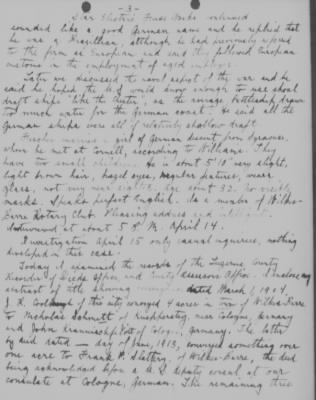 - 3 -
sounded like a good German name and he replied that
he was a Brazilian, although he had previously
to the firm as European and said they followed European
customs in the employment of
Later we discussed the naval aspect of the war and he
said he hoped the U.S. would know enough to use shoal
draft ships like the as the average battleship drawn
too much water for the German coast. He said all the
German ships were all of relatively shallow draft.
married a girl of German descent from Syracuse,
whom he met at Cornell, according to Williams. They
have two small children. He is about 5' 10" very slight,
light brown hair, hazel eyes, regular features, wears
glasses, not very near sighted. Age about 32. No visible
marks. Speaks perfect English. Is a member of Wilkes-
Barre Rotary Club. Pleasing address and intelligent.
at about 5 P.M. April 14.
Investigation April 15 only casual inquiries, nothing
developed in this case.
Today I examined the records of the Luzerne County
Recorder of Deeds office and County Assessors Office. I enclose my
abstract of title showing dated March 1, 1904
J. R. of this city conveyed 4 acres in town of Wilkes-Barre
to Nicholas Schmitt of near Cologne, Germany
and John of Cologne, Germany. The latter
by deed dated — day of June, 1913, conveyed something over
one acre to Frank P. Slattery, of Wilkes-Barre, the deed
being acknowledged before a U.S. deputy consul at our
consulate at Cologne, German. The remaining three